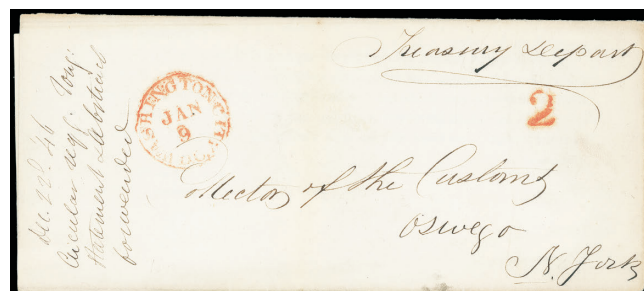 Treasury Depart
2
WASHINGTON CITY
JAN
9
Collector of the Customs
Oswego
N. York
Dec. 22d. '46
Circular
Statement & Abstracts
forwarded